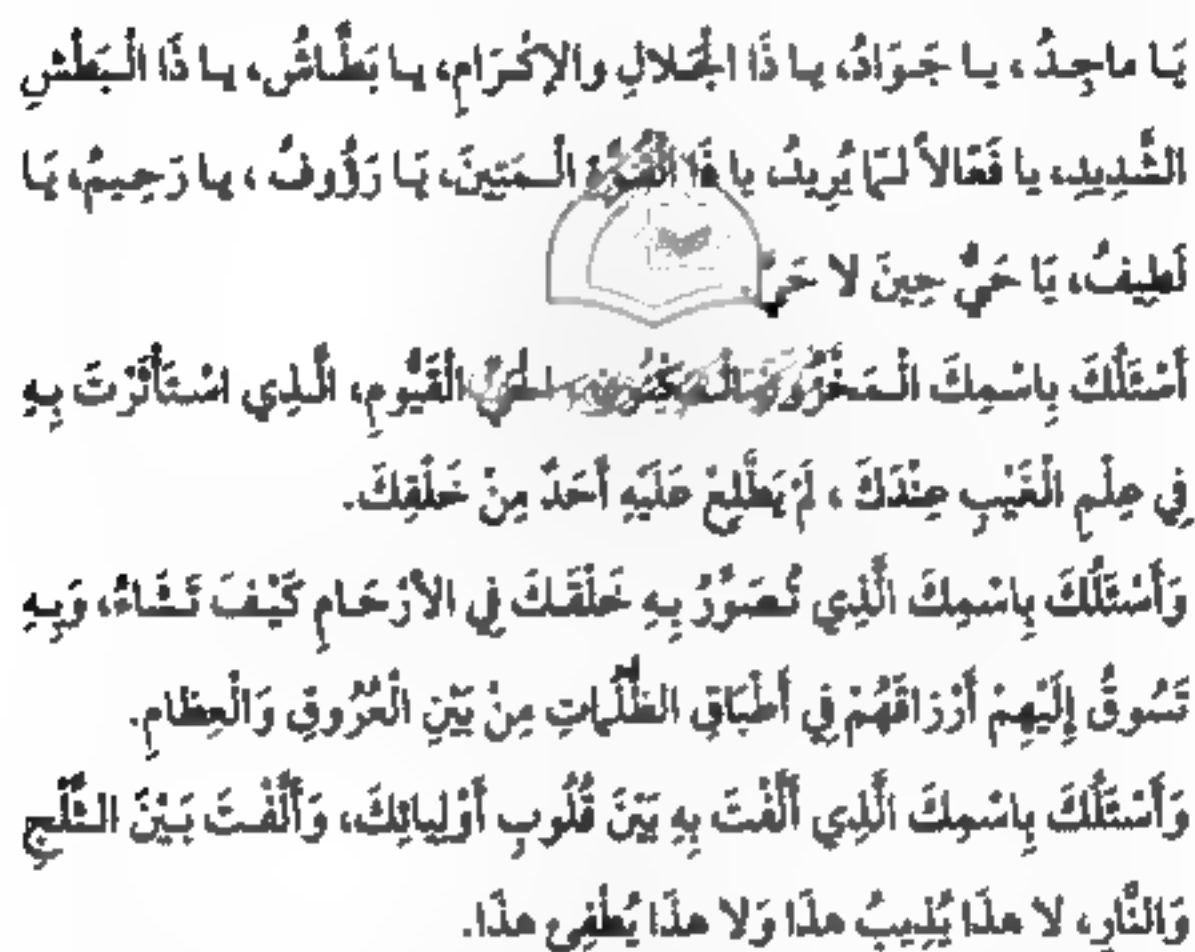 يَا ماجِدُ، يـا جَـوَادُ، يـا ذَا الْجَـلالِ والإكْـرَامِ، يـا بَطَّـاشُ، يـا ذَا الْـبَطْشِ
الشَّدِيدِ، يا فَعّالاً لـمَا يُرِيدُ، يا ذَا الْقُوَّةِ الْـمَتِينَ، يَا رَؤُوفُ، يـا رَحِيمُ، يَـا
لَطِيفُ، يَا حَيُّ حِينَ لا حَيَّ.
أَسْئَلُكَ بِاسْمِكَ الْـمَخْزُونِ الْـمَكْنُونِ الْحَيِّ الْقَيُّومِ، الَّـذِي اسْتَأْثَرْتَ بِـهِ
فِي عِلْمِ الْغَيْبِ عِنْدَكَ، لَمْ يَطَّلِعْ عَلَيْهِ أَحَدٌ مِنْ خَلْقِكَ.
وَأَسْئَلُكَ بِاسْمِكَ الَّذِي تُصَوِّرُ بِهِ خَلْقَكَ فِي الأَرْحَامِ كَيْفَ تَشَاءُ، وَبِـهِ
تَسُوقُ إِلَيْهِمْ أَرْزَاقَهُمْ فِي أَطْبَاقِ الظُّلُمَاتِ مِنْ بَيْنِ الْعُرُوقِ وَالْعِظامِ.
وَأَسْئَلُكَ بِاسْمِكَ الَّذِي أَلَّفْتَ بِهِ بَيْنَ قُلُوبِ أَوْلِيائِكَ، وَأَلَّفْـتَ بَـيْنَ الثَّلْجِ
وَالنَّارِ، لا هذَا يُذِيبُ هذَا وَلا هذَا يُطْفِى هذَا.